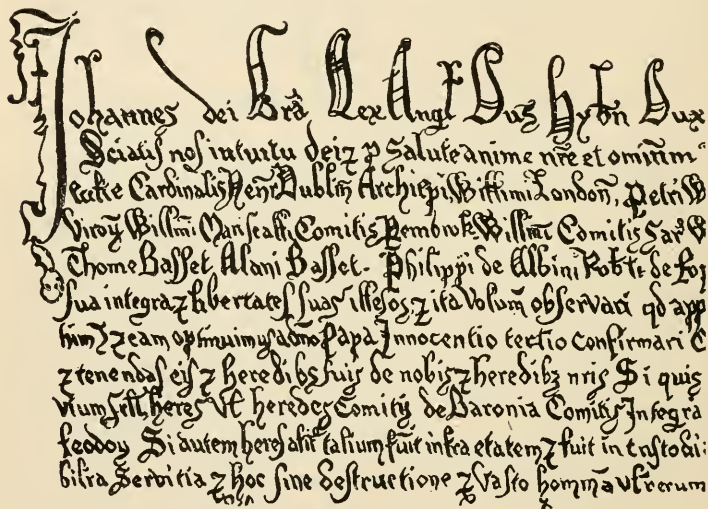 Johannes dei Gra Rex Angl Dns Hybn Dux
Sciatis nos intuitu dei ⁊ p Salute anime nre et omium
eccte Cardinalis Henr Dublin Archiepi Willimi London, Petri W
Viroꝝ Willmi Marescalli Comitis Pembrok Willmi Comitis Sar W
Thome Basset Alani Basset. Philippi de Albini Robti de Rop
sua integra ⁊ libertates suas illesas, ⁊ ita Volum observari qd app
⁊ eam optinuimus a dno Papa Innocentio tertio confirmari C
⁊ tenendas eis ⁊ heredibs suis de nobis ⁊ heredibz nris Si quis
heres Vl heredes Comitis de Baronia Comitis Integra
feodoꝝ Si autem heres alic talium fuit infra etatem ⁊ fuit in custodi
servitia ⁊ hoc sine destructione ⁊ Vasto hominū vl rerum